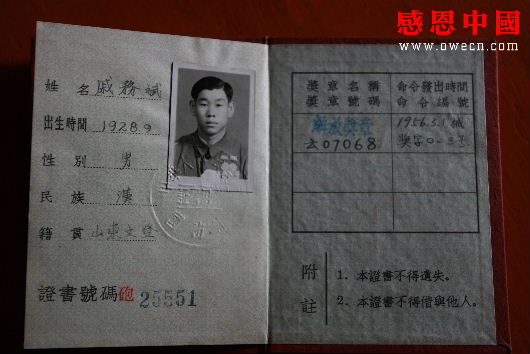 感恩中國
www.owecn.com
姓名 戚務斌
出生時間 1928.9
性別 男
民族 漢
籍貫 山東文登
證書號碼 砲 25551
獎章名稱 獎章號碼
命令發出時間 命令編號
解放獎章
去07068
1956.3.1
附註
1. 本證書不得遺失。
2. 本證書不得借與他人。